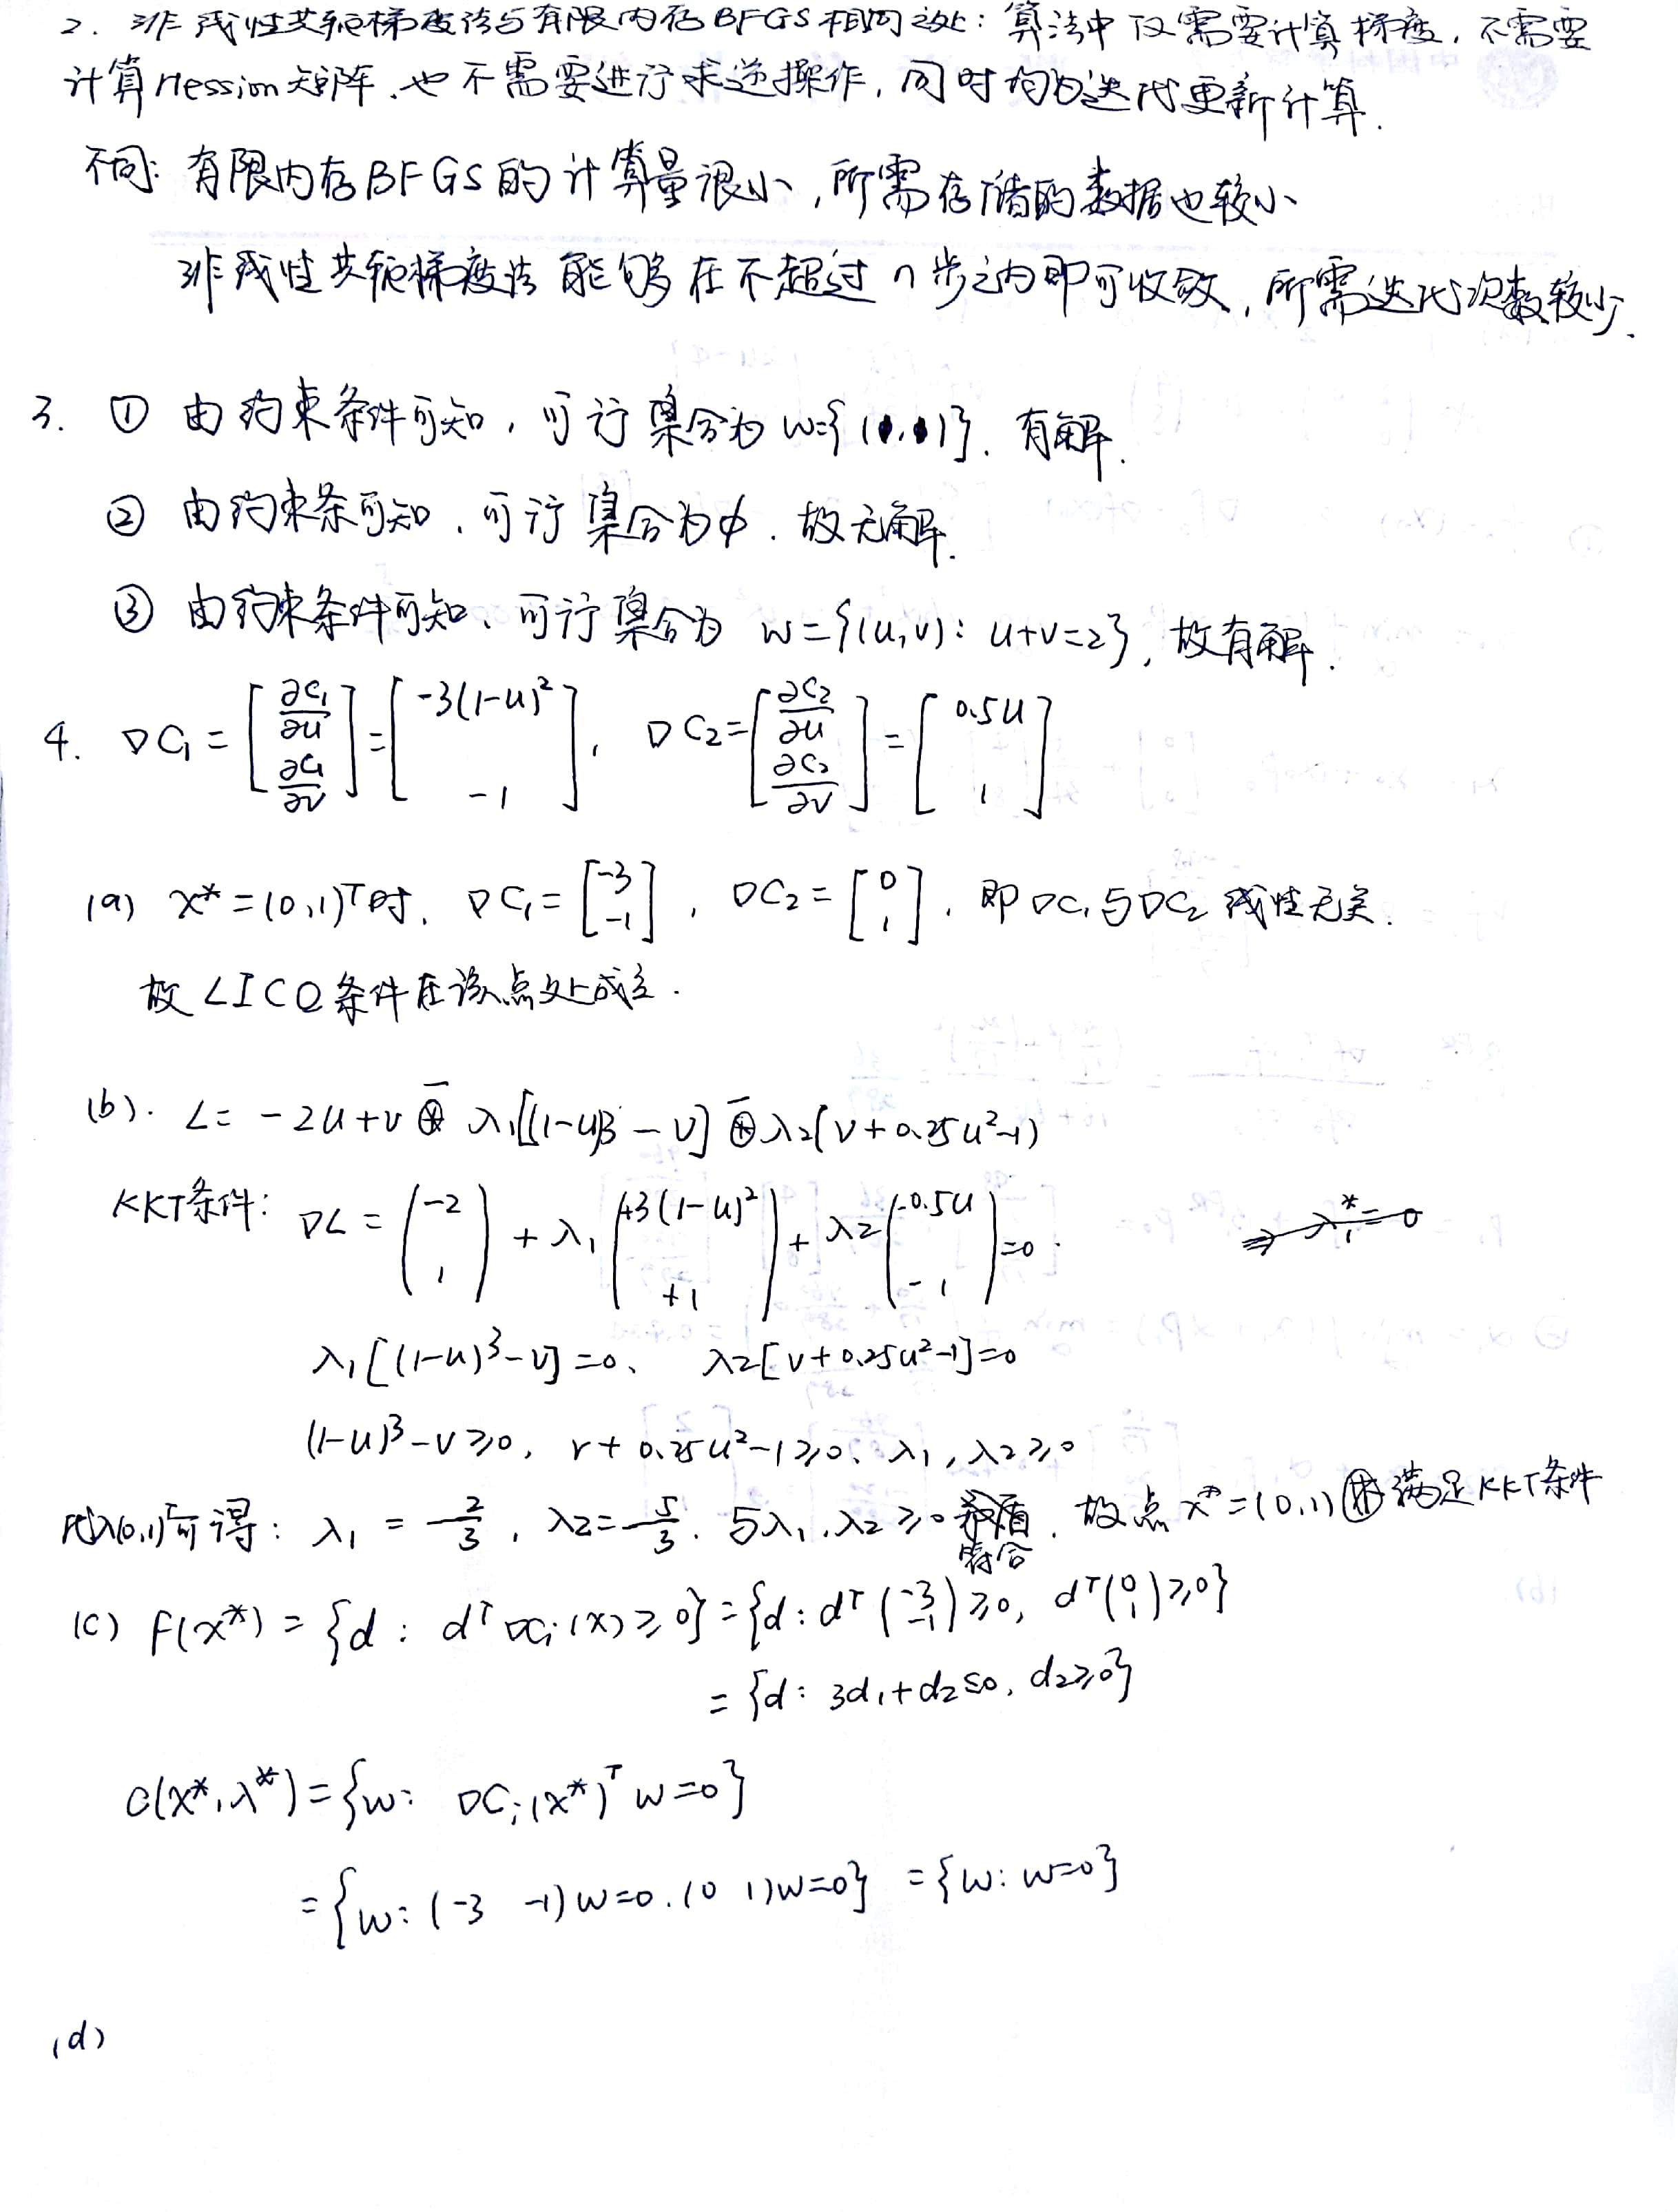 2. 非线性共轭梯度法与有限内存BFGS相同之处：算法中仅需要计算梯度，不需要
计算Hession矩阵，也不需要进行求逆操作，同时均为迭代更新计算．
不同：有限内存BFGS的计算量很小，所需存储的数据也较小
非线性共轭梯度法能够在不超过n步之内即可收敛，所需迭代次数较少．
3. ① 由约束条件可知，可行集合为 w={( , )}，有解．
② 由约束条可知，可行集合为φ．故无解．
③ 由约束条件可知，可行集合为 w={(u,v): u+v=2}，故有解．
4. ∇C₁ = [∂C₁/∂u; ∂C₁/∂v] = [-3(1-u)²; -1]， ∇C₂ = [∂C₂/∂u; ∂C₂/∂v] = [0.5u; 1]
(a) x* = (0,1)ᵀ时，∇C₁ = [-3; -1]，∇C₂ = [0; 1]，即∇C₁与∇C₂线性无关．
故LICQ条件在该点处成立．
(b). L = -2u+v - λ₁[(1-u)³ - v] - λ₂(v+0.25u²-1)
KKT条件：∇L = (-2; 1) + λ₁(+3(1-u)²; +1) + λ₂(-0.5u; -1) = 0．
λ₁[(1-u)³-v]=0、 λ₂[v+0.25u²-1]=0
(1-u)³-v≥0，v+0.25u²-1≥0、λ₁,λ₂≥0
代入(0,1)可得：λ₁ = 2/3，λ₂ = 5/3．与λ₁,λ₂≥0符合．故点x*=(0,1)满足KKT条件
(c) F(x*) = {d: dᵀ∇Cᵢ(x)≥0} = {d: dᵀ(-3; -1)≥0, dᵀ(0; 1)≥0}
= {d: 3d₁+d₂≤0, d₂≥0}
C(x*,λ*) = {w: ∇Cᵢ(x*)ᵀw=0}
= {w: (-3 -1)w=0. (0 1)w=0} = {w: w=0}
(d)